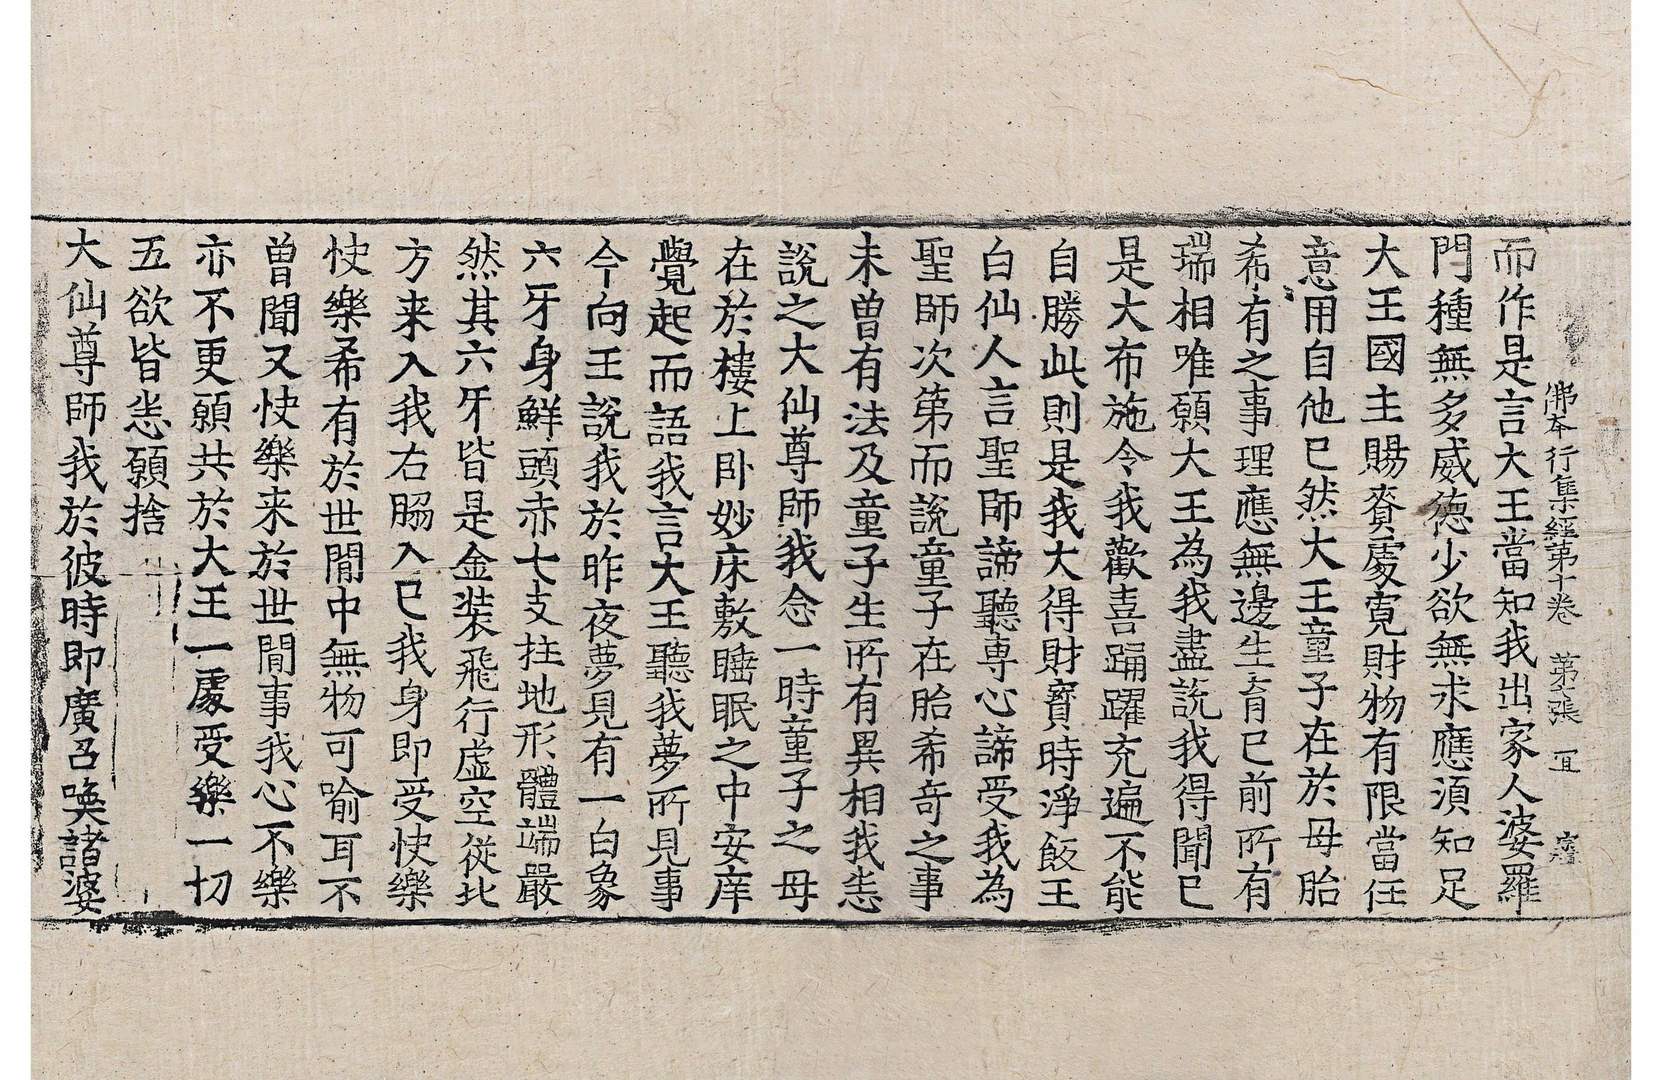 佛本行集經第十卷　第六張　宜
而作是言大王當知我出家人婆羅
門種無多威德少欲無求應須知足
大王國主賜賚處寛財物有限當任
意用自他已然大王童子在於母胎
希有之事理應無邊生育已前所有
瑞相唯願大王為我盡說我得聞已
是大布施令我歡喜踊躍充遍不能
自勝此則是我大得財寶時淨飯王
白仙人言聖師諦聽專心諦受我為
聖師次第而說童子在胎希奇之事
未曽有法及童子生所有異相我悉
說之大仙尊師我念一時童子之母
在於樓上卧妙床敷睡眠之中安庠
覺起而語我言大王聽我夢所見事
今向王說我於昨夜夢見有一白象
六牙身鮮頭赤七支拄地形體端嚴
然其六牙皆是金裝飛行虛空從北
方来入我右脇入已我身即受快樂
快樂希有於世間中無物可喻耳不
曽聞又快樂来於世間事我心不樂
亦不更願共於大王一處受樂一切
五欲皆悉願捨
大仙尊師我於彼時即廣召喚諸婆